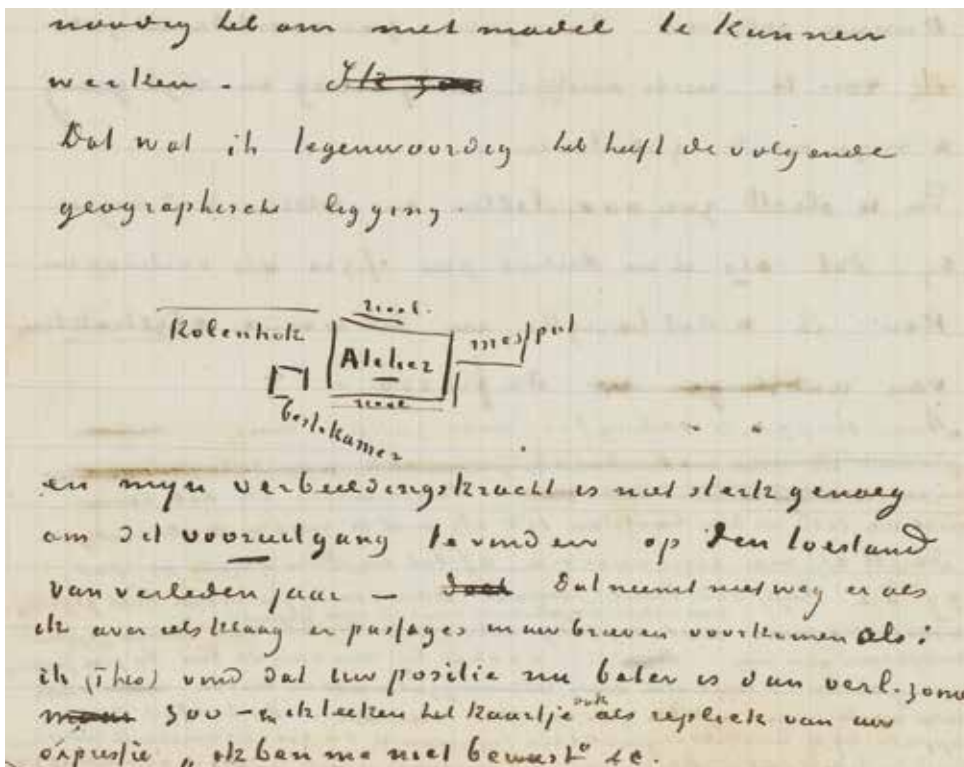 noodig heb om met model te kunnen
werken. Ik zou
Dat wat ik tegenwoordig heb heeft de volgende
geographische ligging.
riool.
Kolenhok
Atelier
mestput
riool
bestekamer
en mijn verbeeldingskracht is niet sterk genoeg
om dit vooruitgang te vinden op den toestand
van verleden jaar — doch Dat neemt niet weg er als
ik over iets klaag er passages in uw brieven voorkomen als:
ik (Theo) vind dat uw positie nu beter is dan verl. zomer
maar zoo — en ik teeken het kaartje ook als repliek van uw
expressie „ik ben me niet bewust" &c.